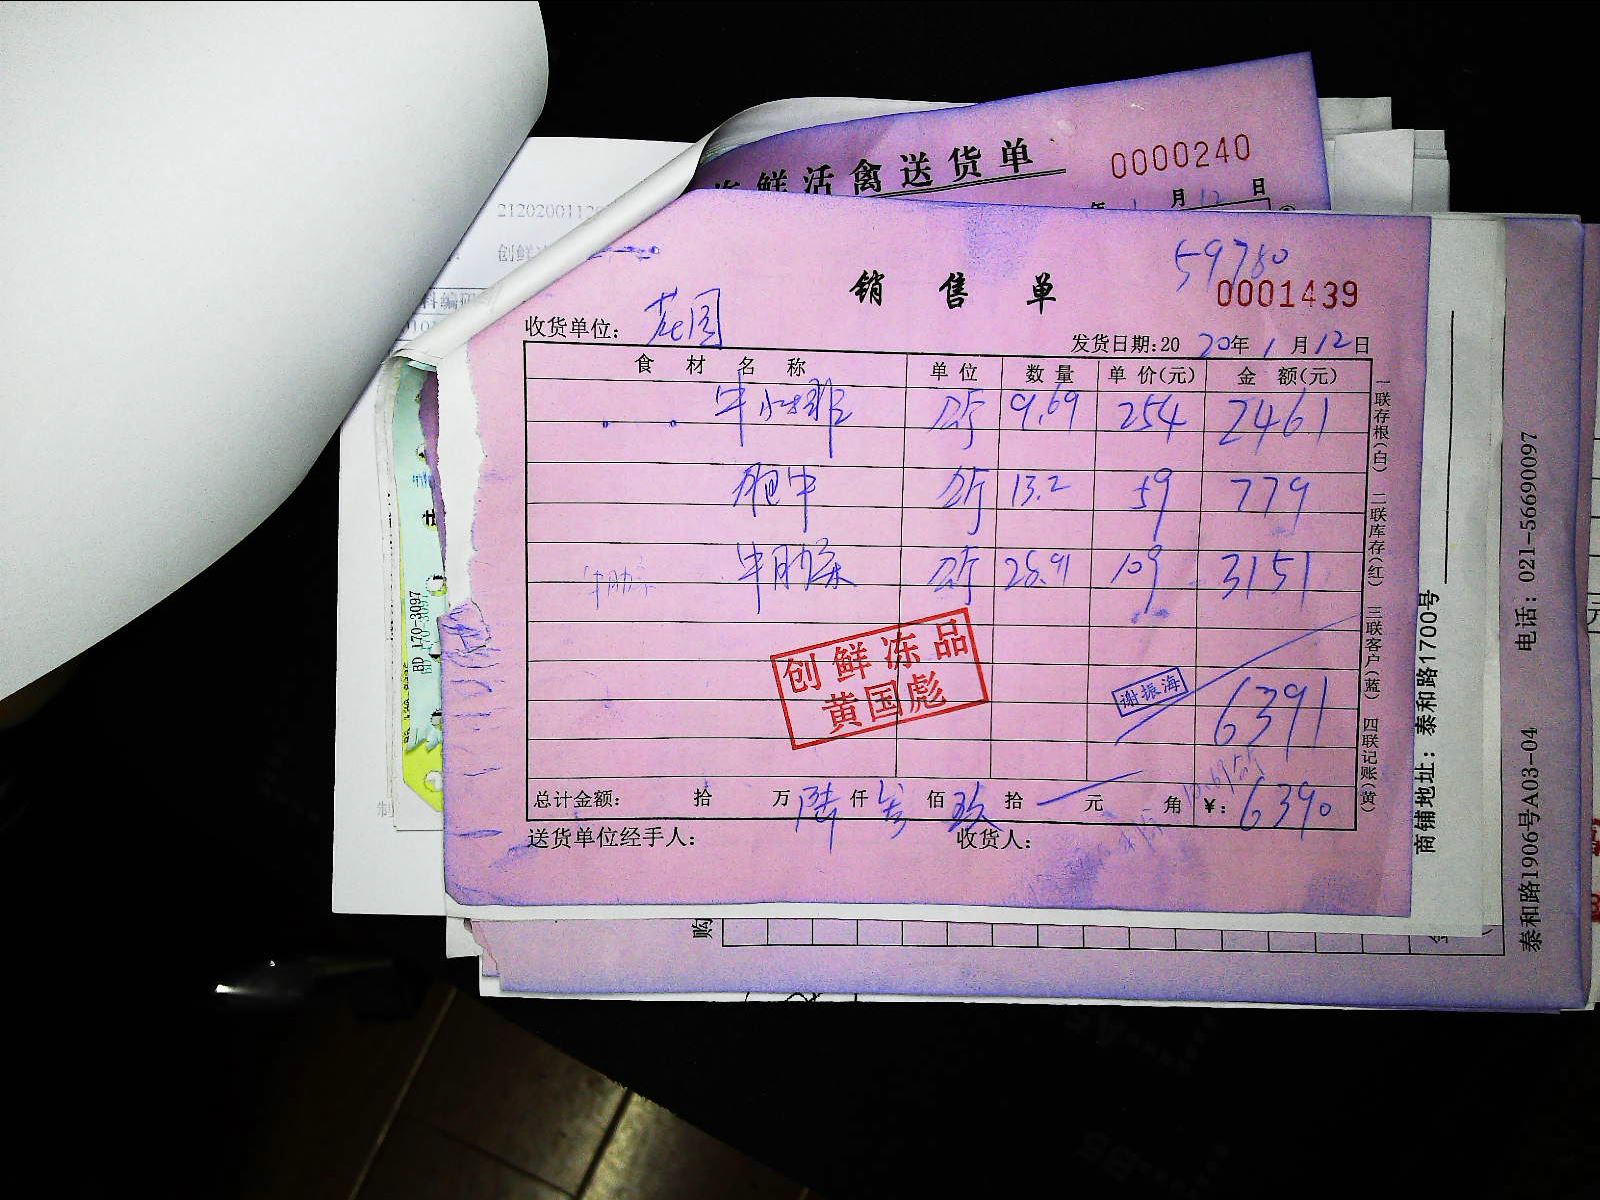 海鲜活禽送货单 0000240
年 1 月 12 日
21202001120
创鲜
料编码
销售单
59780
0001439
收货单位: 花园
发货日期:20 20年 1 月 12 日
食材名称 单位 数量 单价(元) 金额(元)
牛小排 公斤 9.69 254 2461
肥牛 公斤 13.2 59 779
牛肋条 公斤 28.91 109 3151
牛肋条
创鲜冻品
黄国彪
谢振海
6391
总计金额: 拾 万 陆 仟 叁 佰 玖 拾 元 角 ¥: 6390
送货单位经手人: 收货人:
一联存根(白) 二联库存(红) 三联客户(蓝) 四联记账(黄)
商铺地址: 泰和路1700号
泰和路1906号A03-04 电话: 021-56690097
BD 170-3097
购